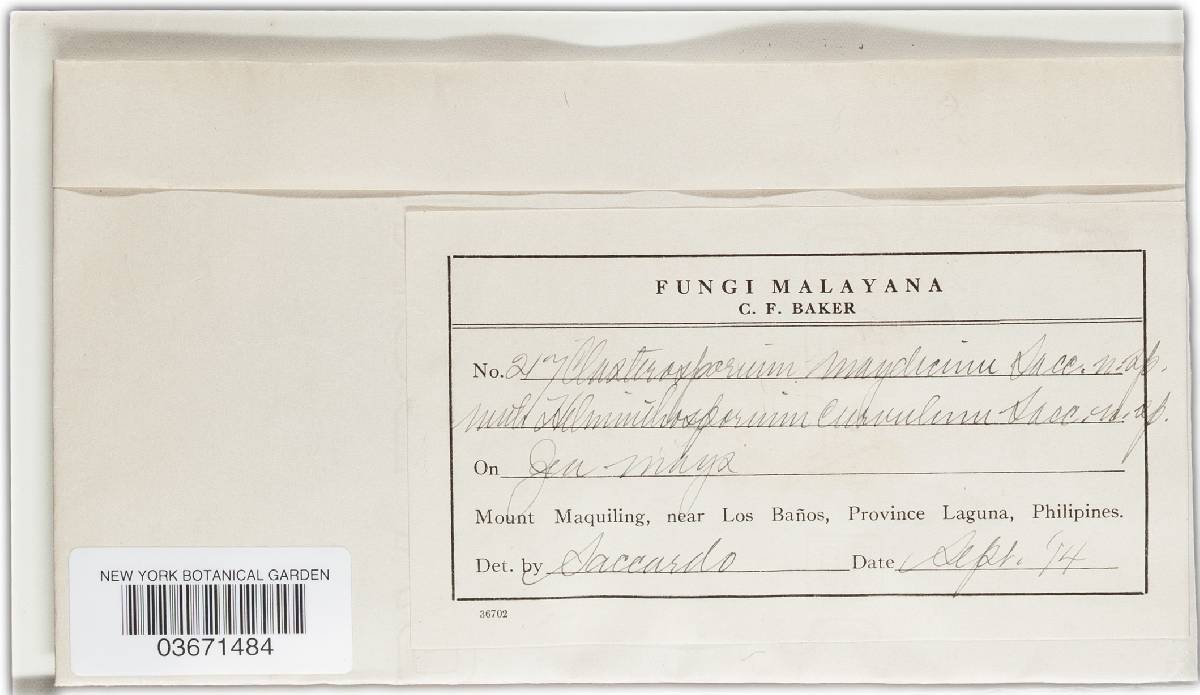 FUNGI MALAYANA
C. F. BAKER
No. 217 Clasterosporium maydicum Sacc. n. sp.
with Helminthosporium curvulum Sacc. n. sp.
On Zea mays
Mount Maquiling, near Los Baños, Province Laguna, Philipines.
Det. by Saccardo Date Sept. '14
36702
NEW YORK BOTANICAL GARDEN
03671484